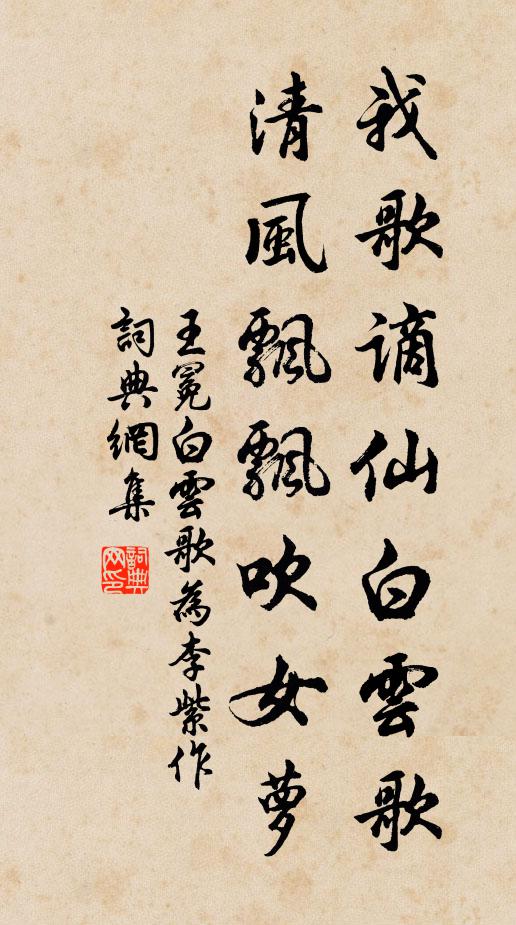 我歌謫仙白雲歌
清風飄飄吹女萝
王冕白雲歌為李紫作
詞典網集
詞典网印